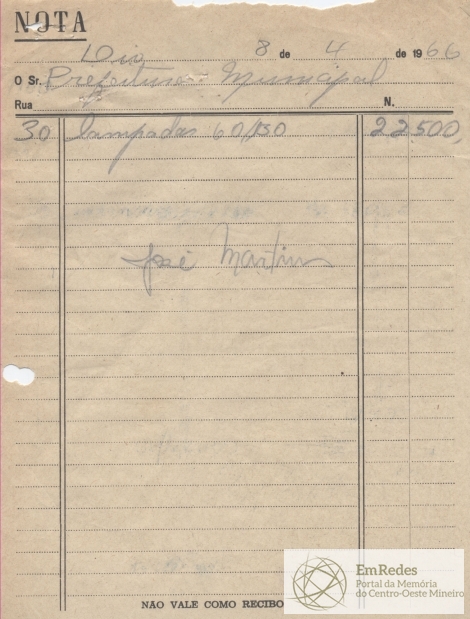 NOTA
Dia 8 de 4 de 1966
O Sr. Prefeitura Municipal
Rua N.
30 lampadas 60/130 22.500,
José Martins
NÃO VALE COMO RECIBO
EmRedes
Portal da Memória
do Centro-Oeste Mineiro